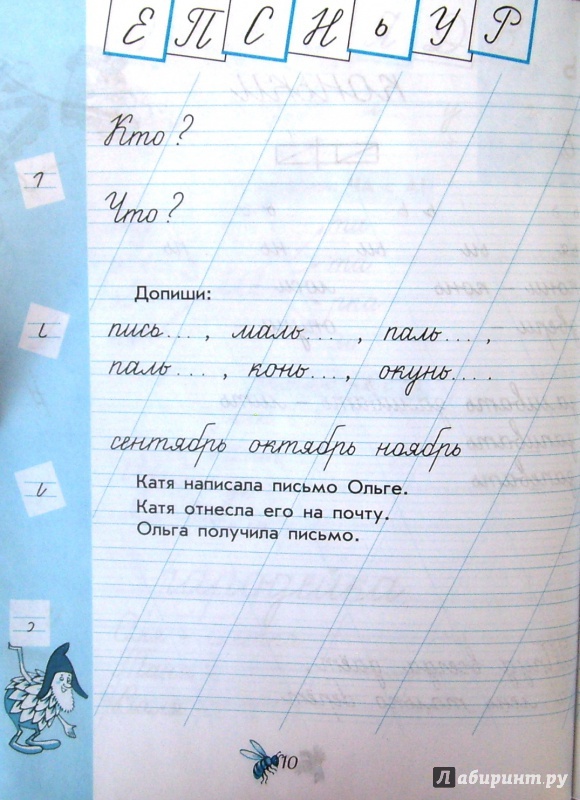 Е П С Н ь У Р
Кто ?
Что ?
Допиши:
пись... , маль... , паль... ,
паль... , конь... , окунь... .
сентябрь октябрь ноябрь
Катя написала письмо Ольге.
Катя отнесла его на почту.
Ольга получила письмо.
10
Лабиринт.ру